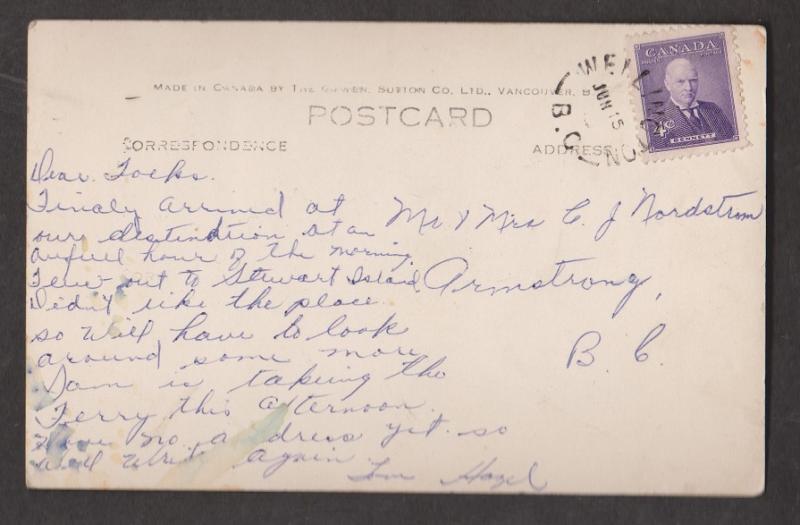 MADE IN CANADA BY THE GOWEN, SUTTON CO. LTD., VANCOUVER, B.
POSTCARD
CORRESPONDENCE
ADDRESS
CANADA
4¢
BENNETT
WELLINGTON
JUN 15
B.C.
Dear Folks.
Finaly arrived at
oure destination at an
awfull hour of the morning
Flew out to Stewart Island
Didn't like the place
so will have to look
around some more
Sam is takeing the
Ferry this afternoon.
Have no adress yet so
will write again
Hazel
Mr & Mrs C. J Nordstrom
Armstrong,
B. C.